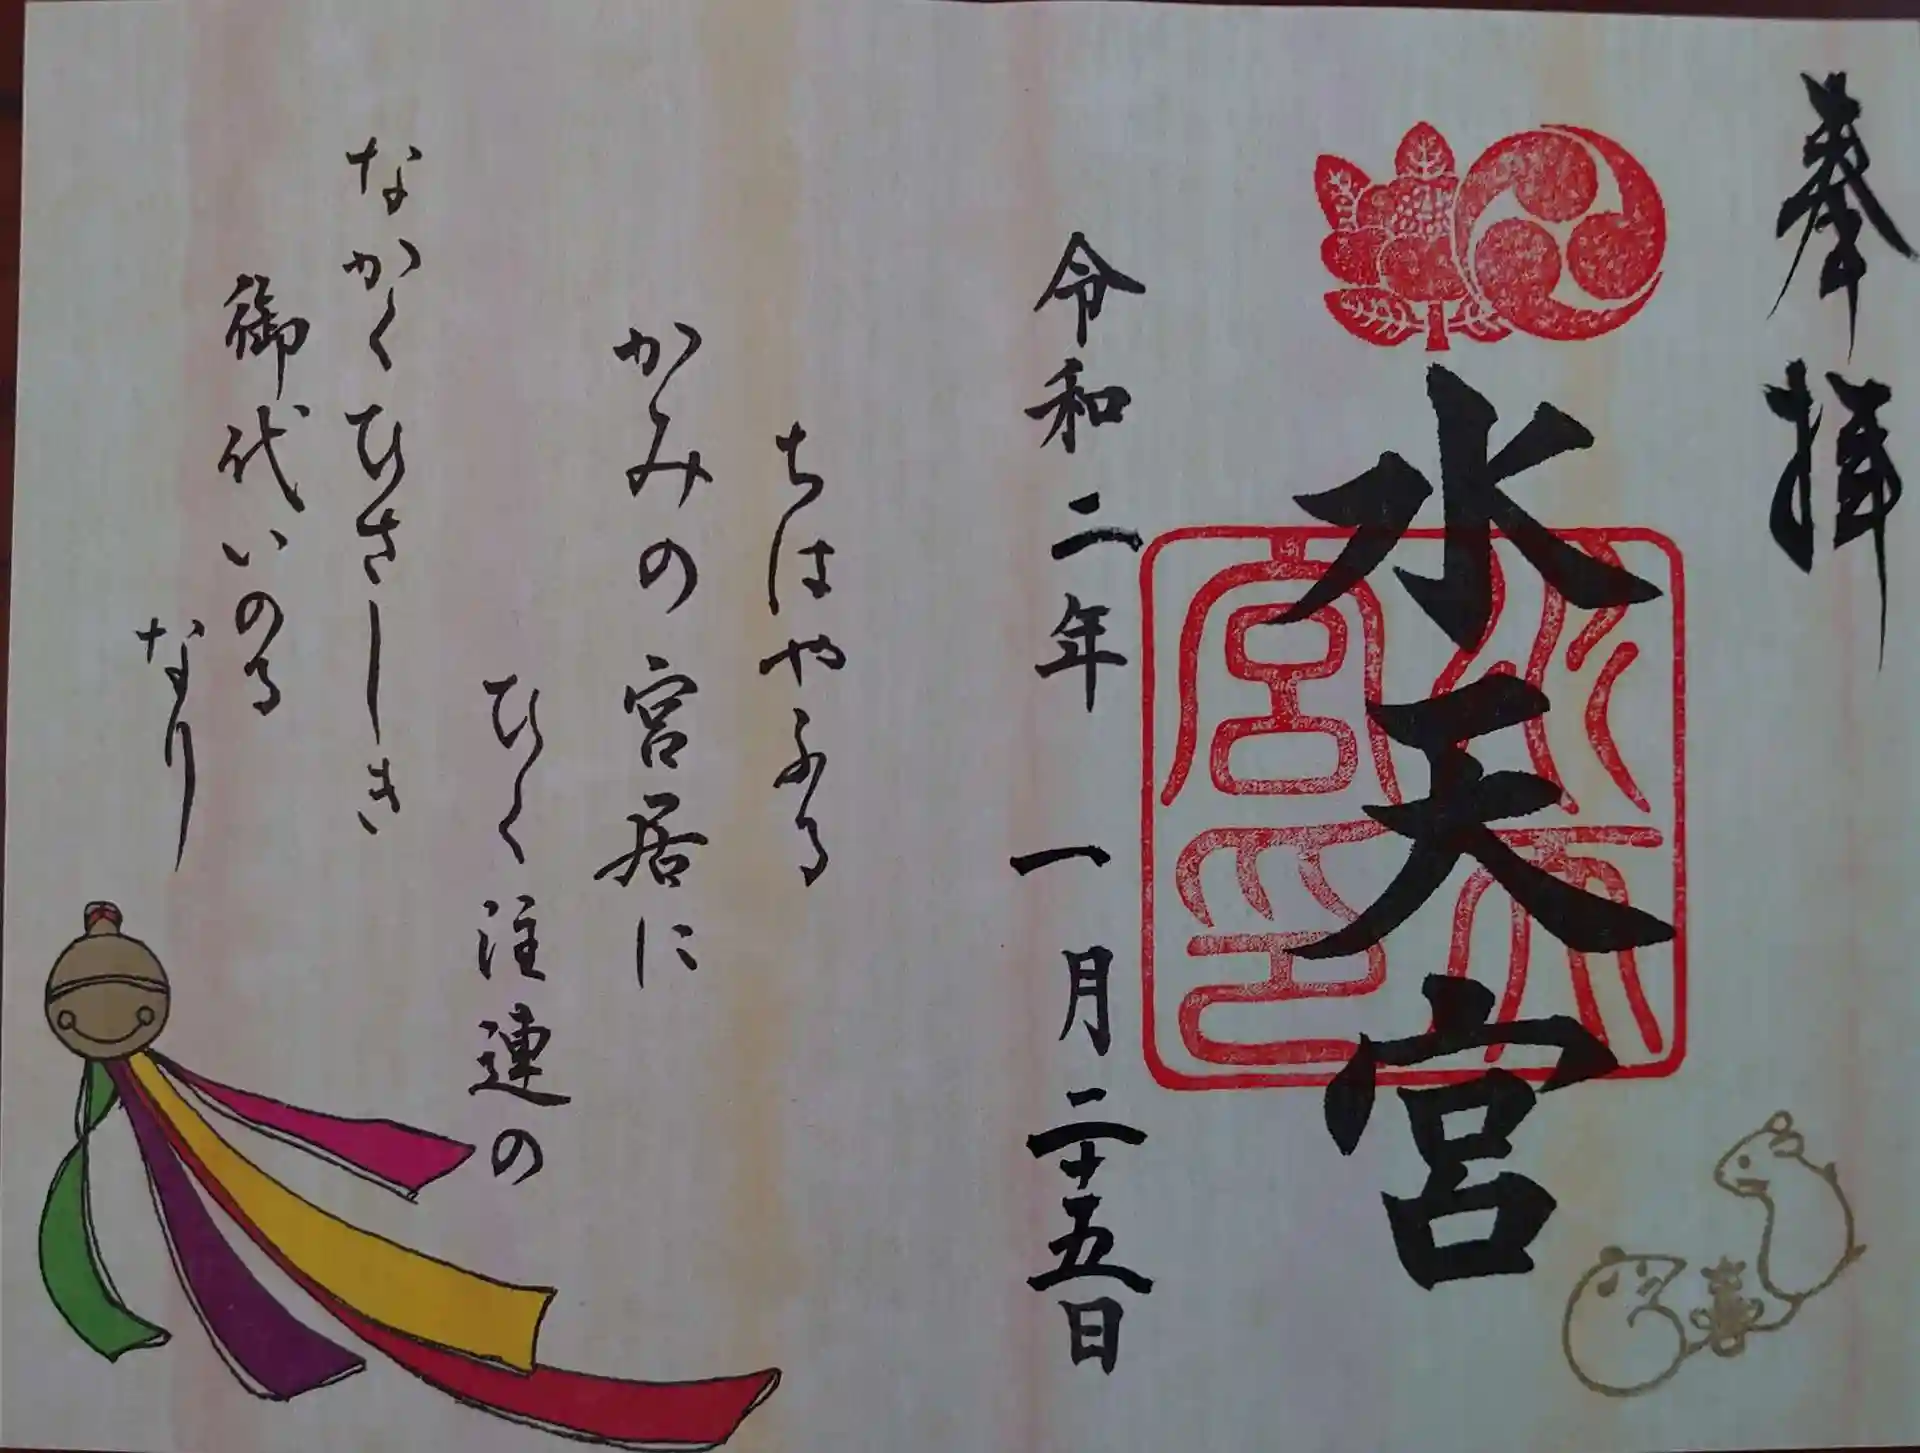 奉拝
水天宮
水天宮印
令和二年 一月二十五日
ちはやふる
かみの宮居に
ひく注連の
なかくひさしき
御代いのる
なり